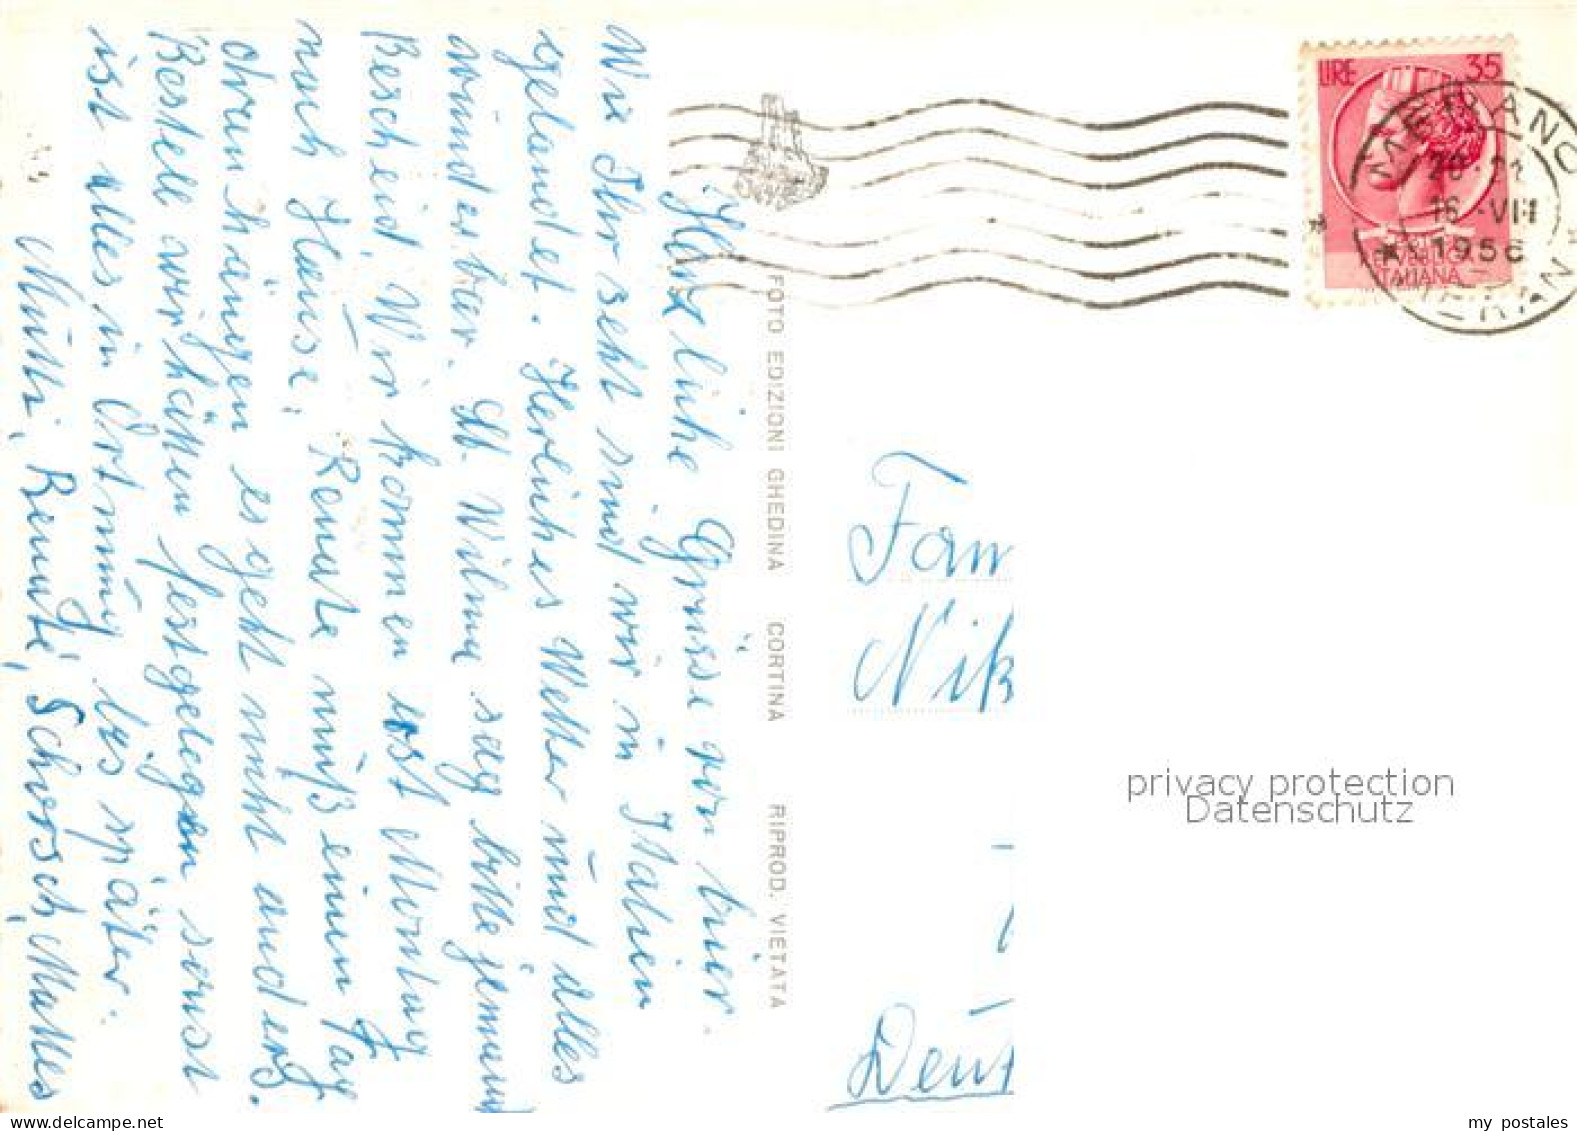 Herzliche Grüsse von hier.
Wie Ihr seht sind wir in Italien
gelandet. Herliches Wetter und alles
wunderbar. Lb. Wilma sag bitte jemand
Bescheid, Wir kommen erst Montag
nach Hause,
Renate muß einen Tag
dranhängen es geht nicht anders.
Bestell wir hätten festgelegen sonst
ist alles in Ortnung bis später.
Mutti, Renate, Schorsch, Mattes
FOTO EDIZIONI GHEDINA CORTINA RIPROD. VIETATA
LIRE 35
REPUBBLICA
ITALIANA
MERANO
20-21
16.-VII
1956
MERAN
Fam
Nik
Deut
privacy protection
Datenschutz
my postales